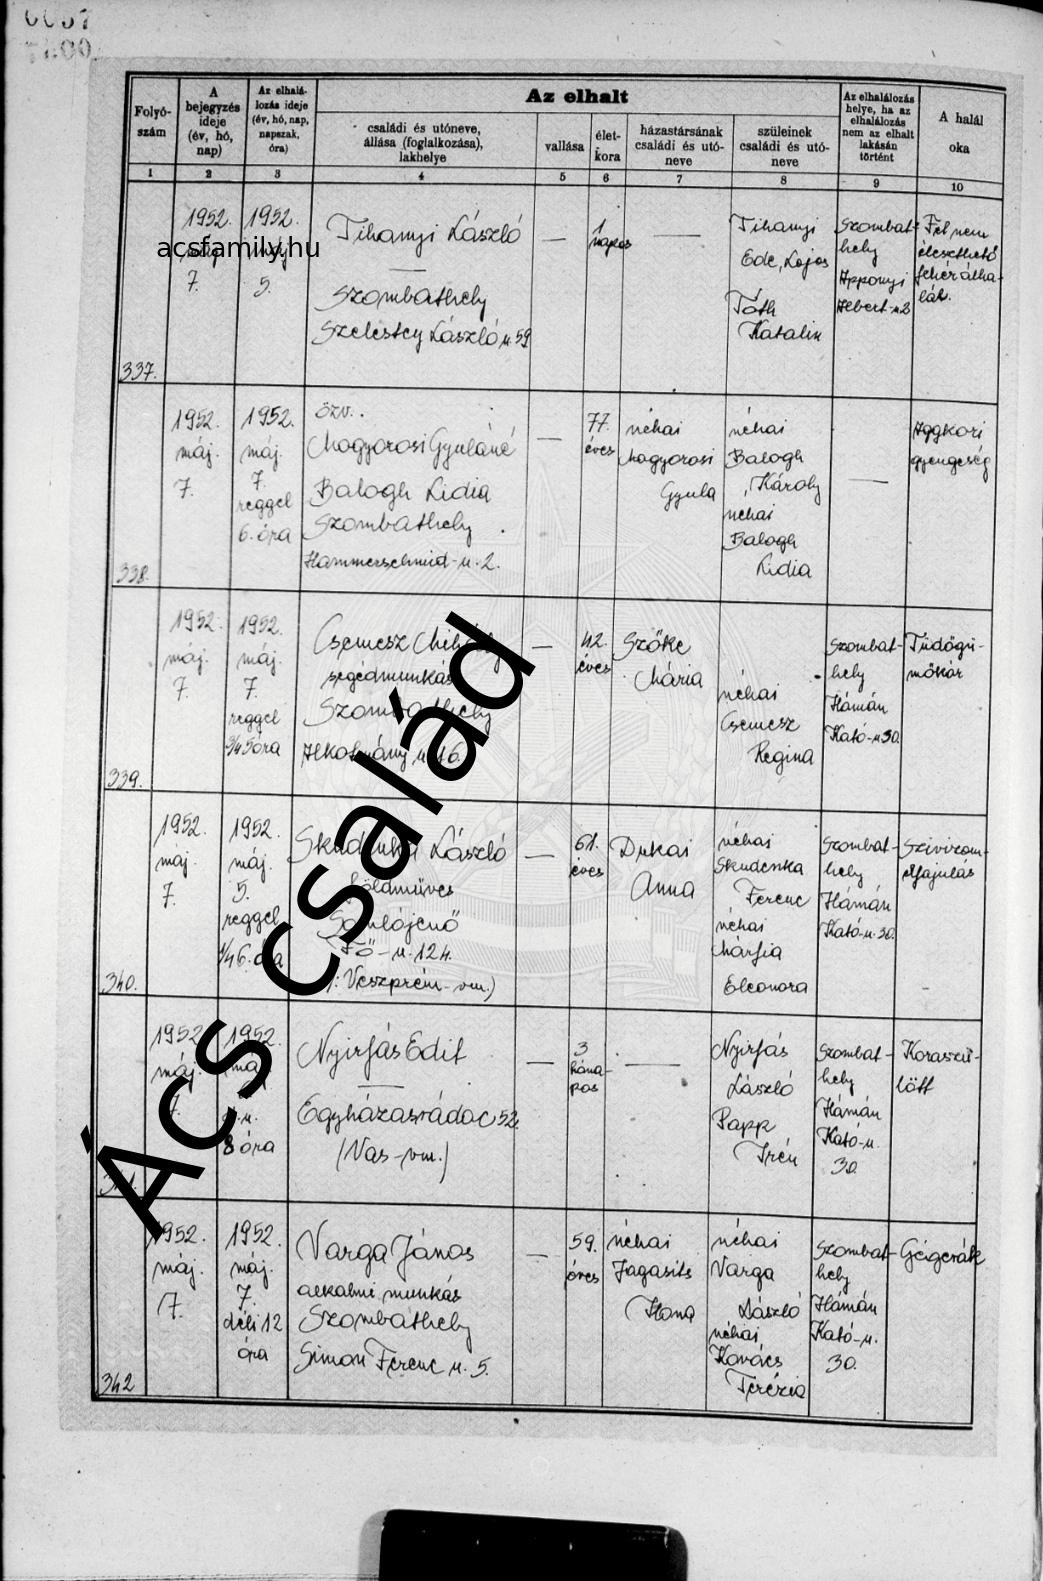 0057
Az elhalt
Folyó-
szám
A
bejegyzés
ideje
(év, hó,
nap)
Az elhalá-
lozás ideje
(év, hó, nap,
napszak,
óra)
családi és utóneve,
állása (foglalkozása),
lakhelye
vallása
élet-
kora
házastársának
családi és utó-
neve
szüleinek
családi és utó-
neve
Az elhalálozás
helye, ha az
elhalálozás
nem az elhalt
lakásán
történt
A halál
oka
1 2 3 4 5 6 7 8 9 10
337.
1952.
7.
1952.
5.
Tihanyi László
—
Szombathely
Szelestey László u. 59
—
1
napos
—
Tihanyi
Ede, Lajos
Tóth
Katalin
Szombat-
hely
Apponyi
Fel nem
éleszthető
338.
1952.
máj.
7.
1952.
máj.
7.
reggel
6. óra
özv.
Mogyorosi Gyuláné
Balogh Lidia
Szombathely
Hammerschmid-u. 2.
—
77.
éves
néhai
Mogyorosi
Gyula
néhai
Balogh
Károly
néhai
Balogh
Lidia
—
Aggkori
gyengeség
339.
1952.
máj.
7.
1952.
máj.
7.
reggel
3/4 5 óra
Csemesz
segédmunkás
Szombathely
Alkotmány u. 16.
—
42.
éves
Szőke
Mária
néhai
Csemesz
Regina
Szombat-
hely
Hámán
Kató-u 30.
Tüdőgü-
mőkór
340.
1952.
máj.
7.
1952.
máj.
5.
reggel
László
földműves
Somlójenő
Fő-u. 124.
(: Veszprém-vm.)
—
61.
éves
Dukai
Anna
néhai
Skudenka
Ferenc
néhai
Eleonora
Szombat-
hely
Hámán
Kató-u. 30.
Szivizom-
elfajulás
1952
máj.
7.
1952.
8 óra
Nyirfás Edit
—
Egyházasrádóc 52.
(Vas-vm.)
—
3
hóna-
pos
—
Nyirfás
László
Papp
Irén
Szombat-
hely
Hámán
Kató-u.
30.
Koraszü-
lött
342
1952.
máj.
7.
1952.
máj.
7.
déli 12
óra
Varga János
alkalmi munkás
Szombathely
Simon Ferenc u. 5.
—
59.
éves
néhai
Jagasits
Ilona
néhai
Varga
László
néhai
Kovács
Terézia
Szombat-
hely
Hámán
Kató-u.
30.
Gégerák
acsfamily.hu
Ács család